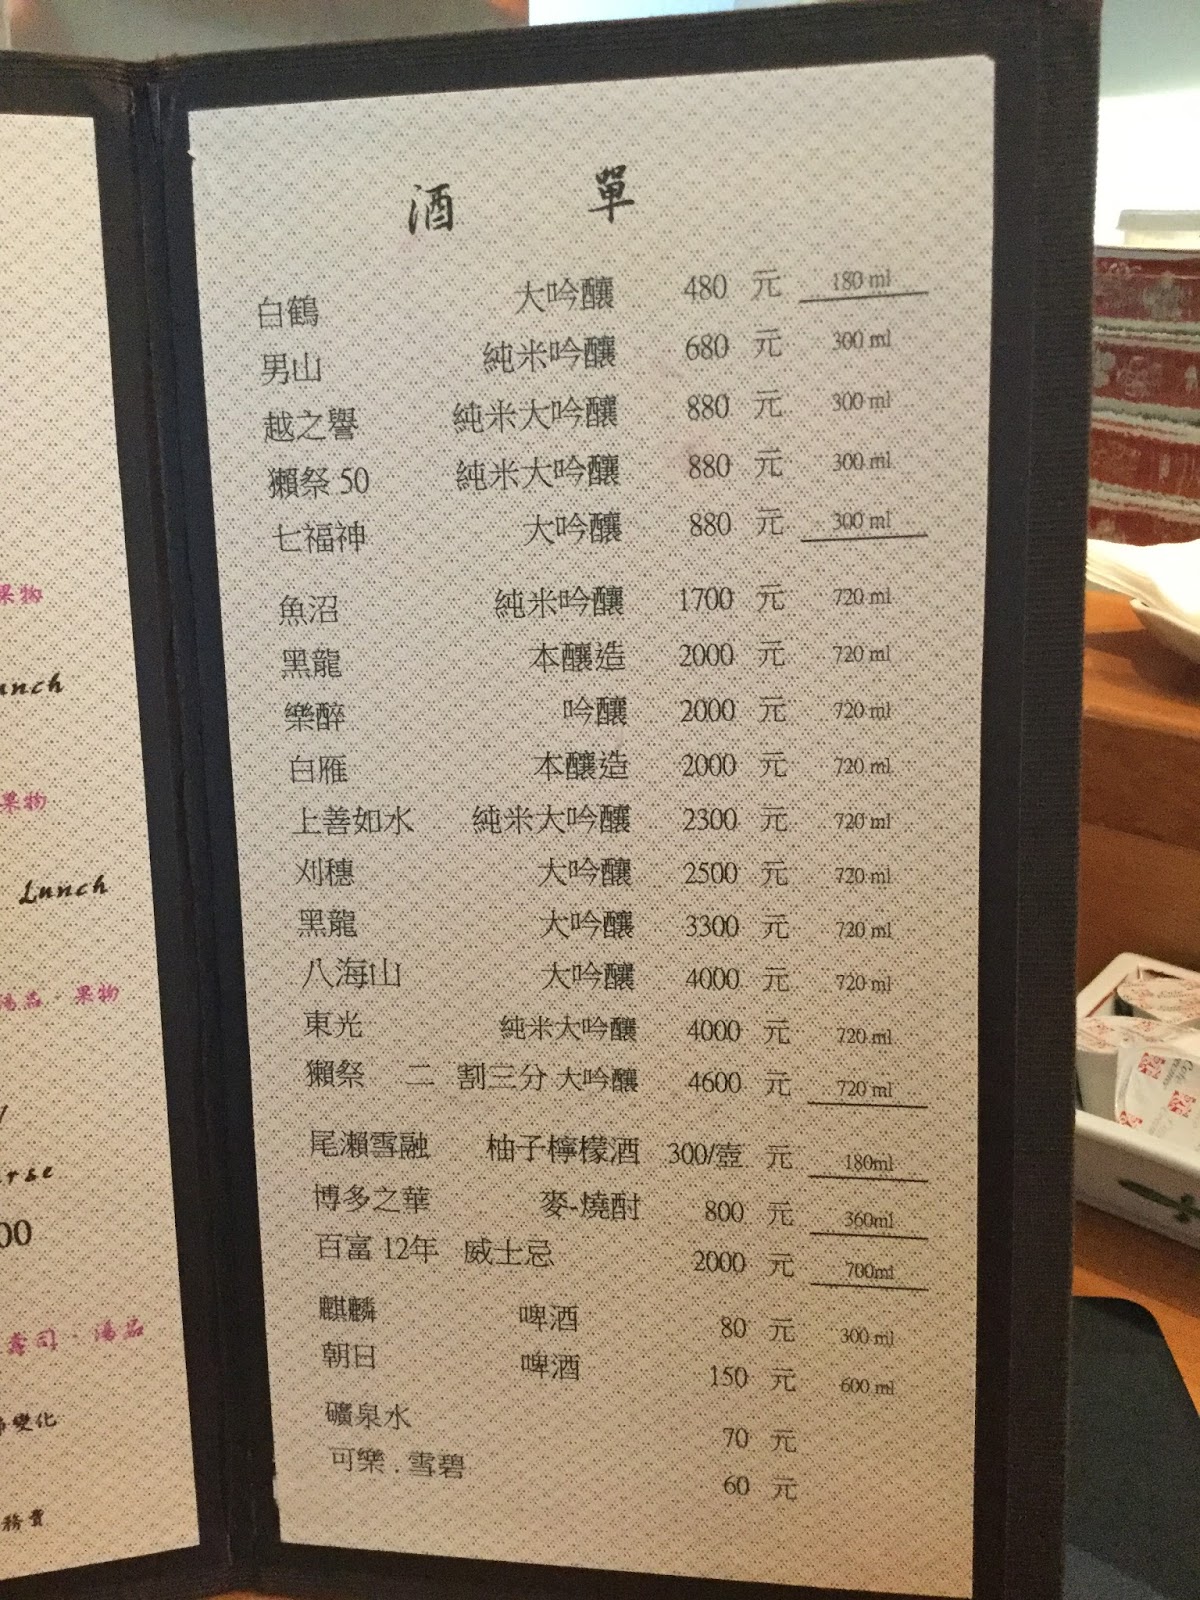 酒 單
白鶴 大吟釀 480 元 180 ml
男山 純米吟釀 680 元 300 ml
越之譽 純米大吟釀 880 元 300 ml
獺祭 50 純米大吟釀 880 元 300 ml
七福神 大吟釀 880 元 300 ml
魚沼 純米吟釀 1700 元 720 ml
黑龍 本釀造 2000 元 720 ml
樂醉 吟釀 2000 元 720 ml
白雁 本釀造 2000 元 720 ml
上善如水 純米大吟釀 2300 元 720 ml
刈穗 大吟釀 2500 元 720 ml
黑龍 大吟釀 3300 元 720 ml
八海山 大吟釀 4000 元 720 ml
東光 純米大吟釀 4000 元 720 ml
獺祭 二 割三分 大吟釀 4600 元 720 ml
尾瀨雪融 柚子檸檬酒 300/壺 元 180ml
博多之華 麥-燒酎 800 元 360ml
百富 12年 威士忌 2000 元 700ml
麒麟 啤酒 80 元 300 ml
朝日 啤酒 150 元 600 ml
礦泉水 70 元
可樂 . 雪碧 60 元
果物
果物
Lunch
湯品 · 果物
00
壽司 · 湯品
變化
務費